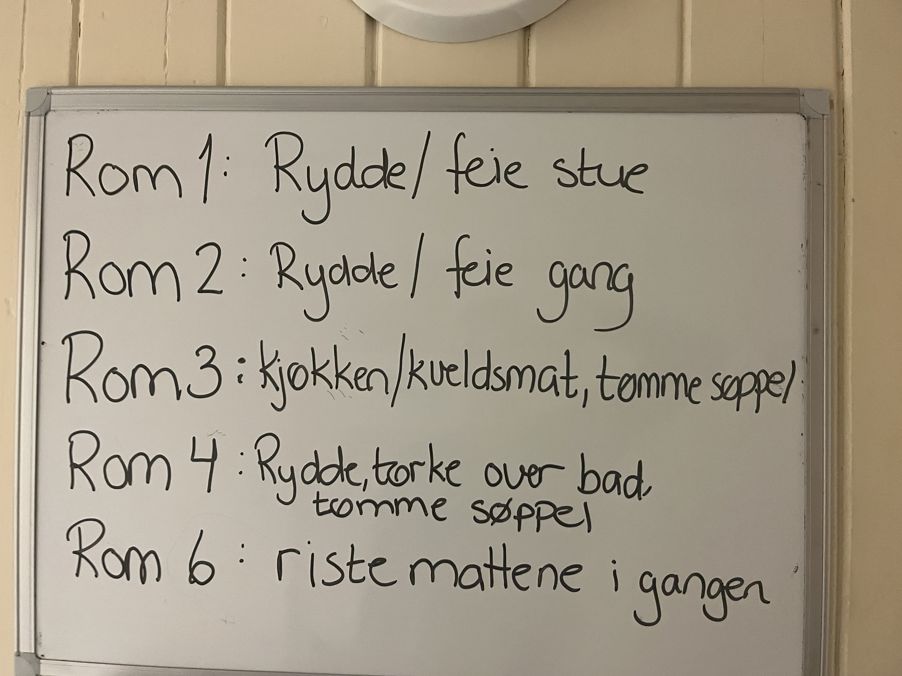 Rom 1: Rydde/ feie stue
Rom 2: Rydde/ feie gang
Rom 3: kjøkken/kveldsmat, tømme søppel
Rom 4: Rydde, tørke over bad,
tømme søppel
Rom 6: riste mattene i gangen